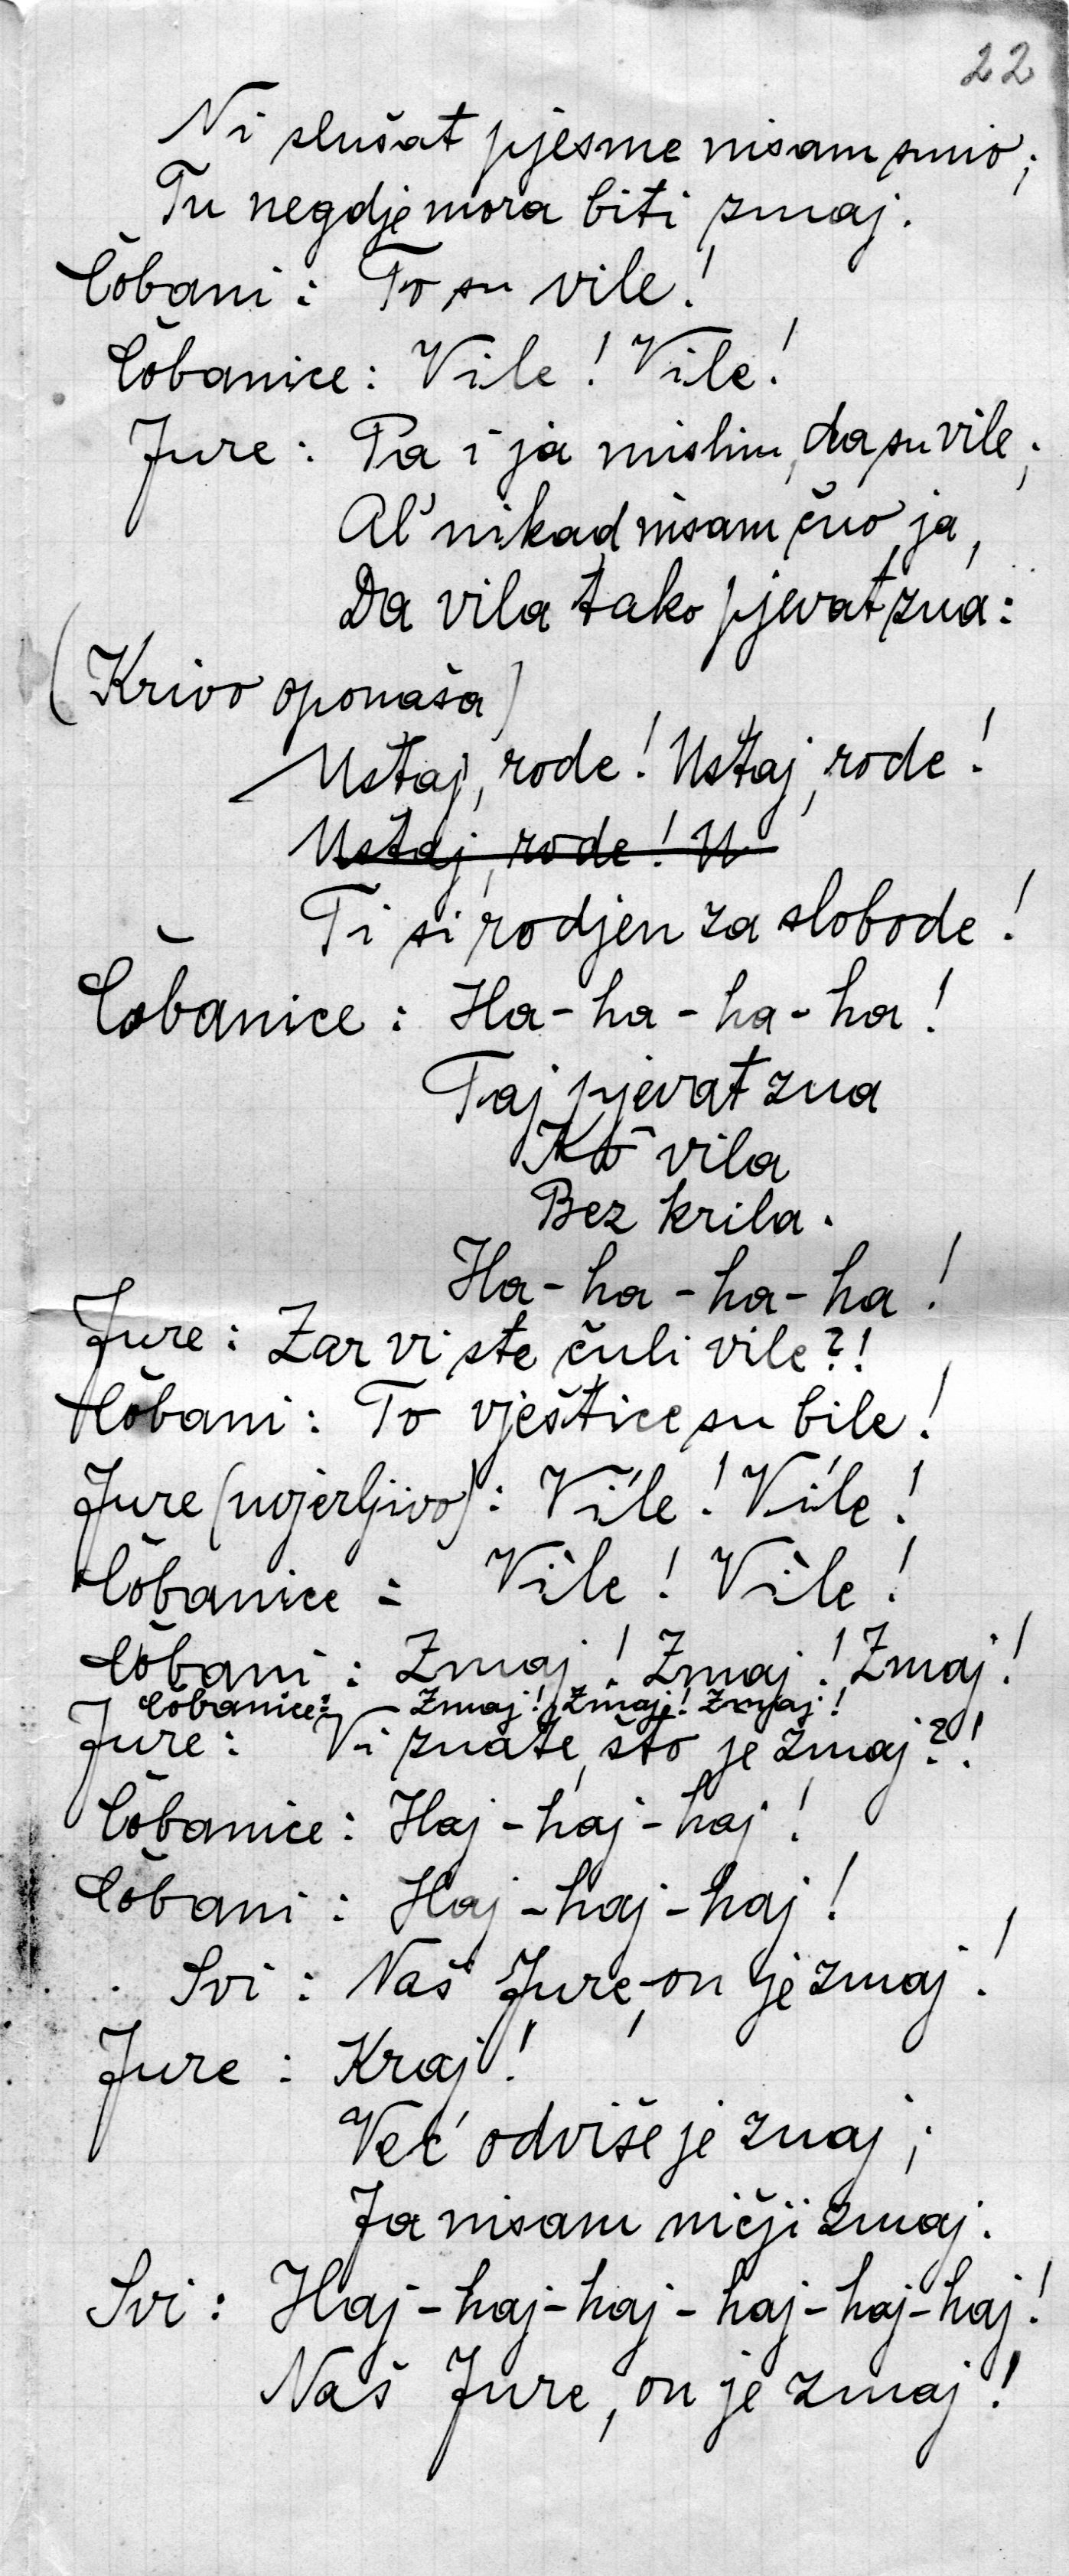 22
Ni slušat pjesme nisam smio;
Tu negdje mora biti zmaj.
Čobani: To su vile!
Čobanice: Vile! Vile!
Jure: Pa i ja mislim, da su vile;
Al' nikad nisam čuo ja,
Da vila tako pjevat zna:
(Krivo oponaša)
Ustaj, rode! Ustaj, rode!
Ustaj, rode! U
Ti si rodjen za slobode!
Čobanice: Ha-ha-ha-ha!
Taj pjevat zna
Kô vila
Bez krila.
Ha-ha-ha-ha!
Jure: Zar vi ste čuli vile?!
Čobani: To vještice su bile!
Jure (uvjerljivo): Vile! Vile!
Čobanice: Vile! Vile!
Čobani: Zmaj! Zmaj! Zmaj!
Čobanice: - Zmaj! Zmaj! Zmaj!
Jure: Vi znate, što je zmaj?!
Čobanice: Haj-haj-haj!
Čobani: Haj-haj-haj!
Svi: Naš Jure, on je zmaj!
Jure: Kraj!
Već odviše je znaj;
Ja nisam ničji zmaj.
Svi: Haj-haj-haj-haj-haj-haj!
Naš Jure, on je zmaj!